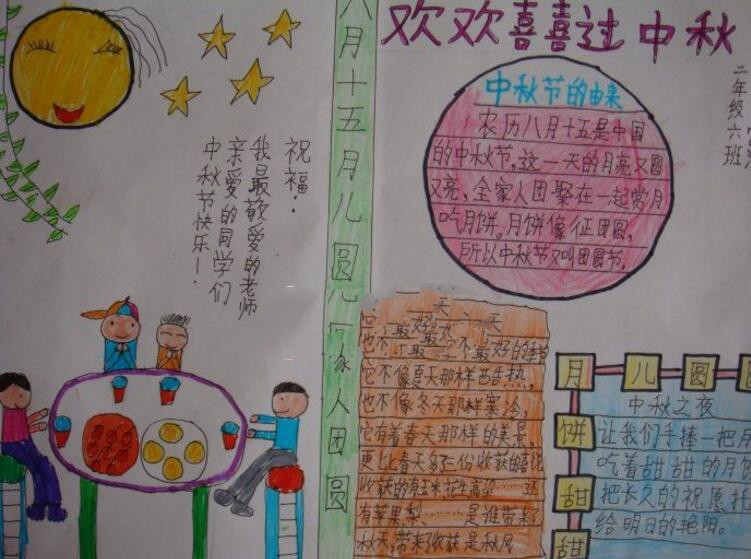 欢欢喜喜过中秋
二年级六班
中秋节的由来
农历八月十五是中国
的中秋节,这一天的月亮又圆
又亮,全家人团聚在一起赏月
吃月饼。月饼像征团圆,
所以中秋节又叫团圆节。
八月十五月儿圆儿家人团圆
祝福:
我最敬爱的老师
亲爱的同学们
中秋节快乐!
最好的季节
它不像夏天那样酷热,
也不像冬天那样寒冷,
它有着春天那样的美景,
更比春天多了一份收获的喜悦
收获的有玉米
有苹果梨……是谁带来
秋天带来收获是秋风
月儿圆
饼甜甜
中秋之夜
让我们手捧一把月
吃着甜甜的月
把长久的祝愿
给明日的艳阳。